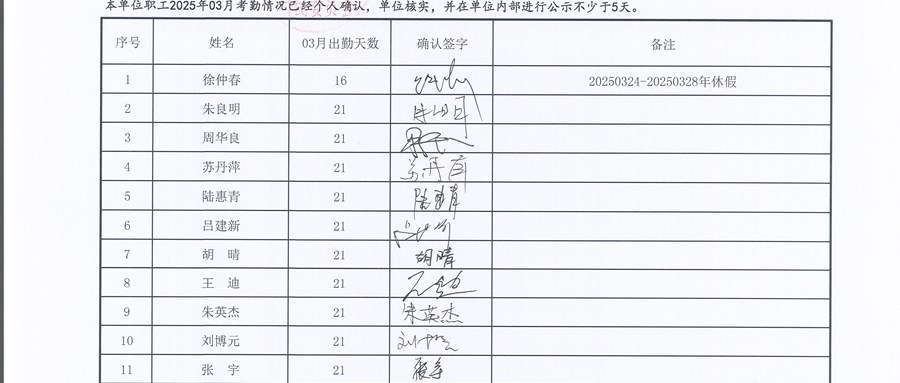 本单位职工2025年03月考勤情况已经个人确认，单位核实，并在单位内部进行公示不少于5天。
序号 姓名 03月出勤天数 确认签字 备注
1 徐仲春 16 20250324-20250328年休假
2 朱良明 21 朱良明
3 周华良 21
4 苏丹萍 21 苏丹萍
5 陆惠青 21 陆惠青
6 吕建新 21
7 胡 晴 21 胡晴
8 王 迪 21
9 朱英杰 21 朱英杰
10 刘博元 21 刘博元
11 张 宇 21